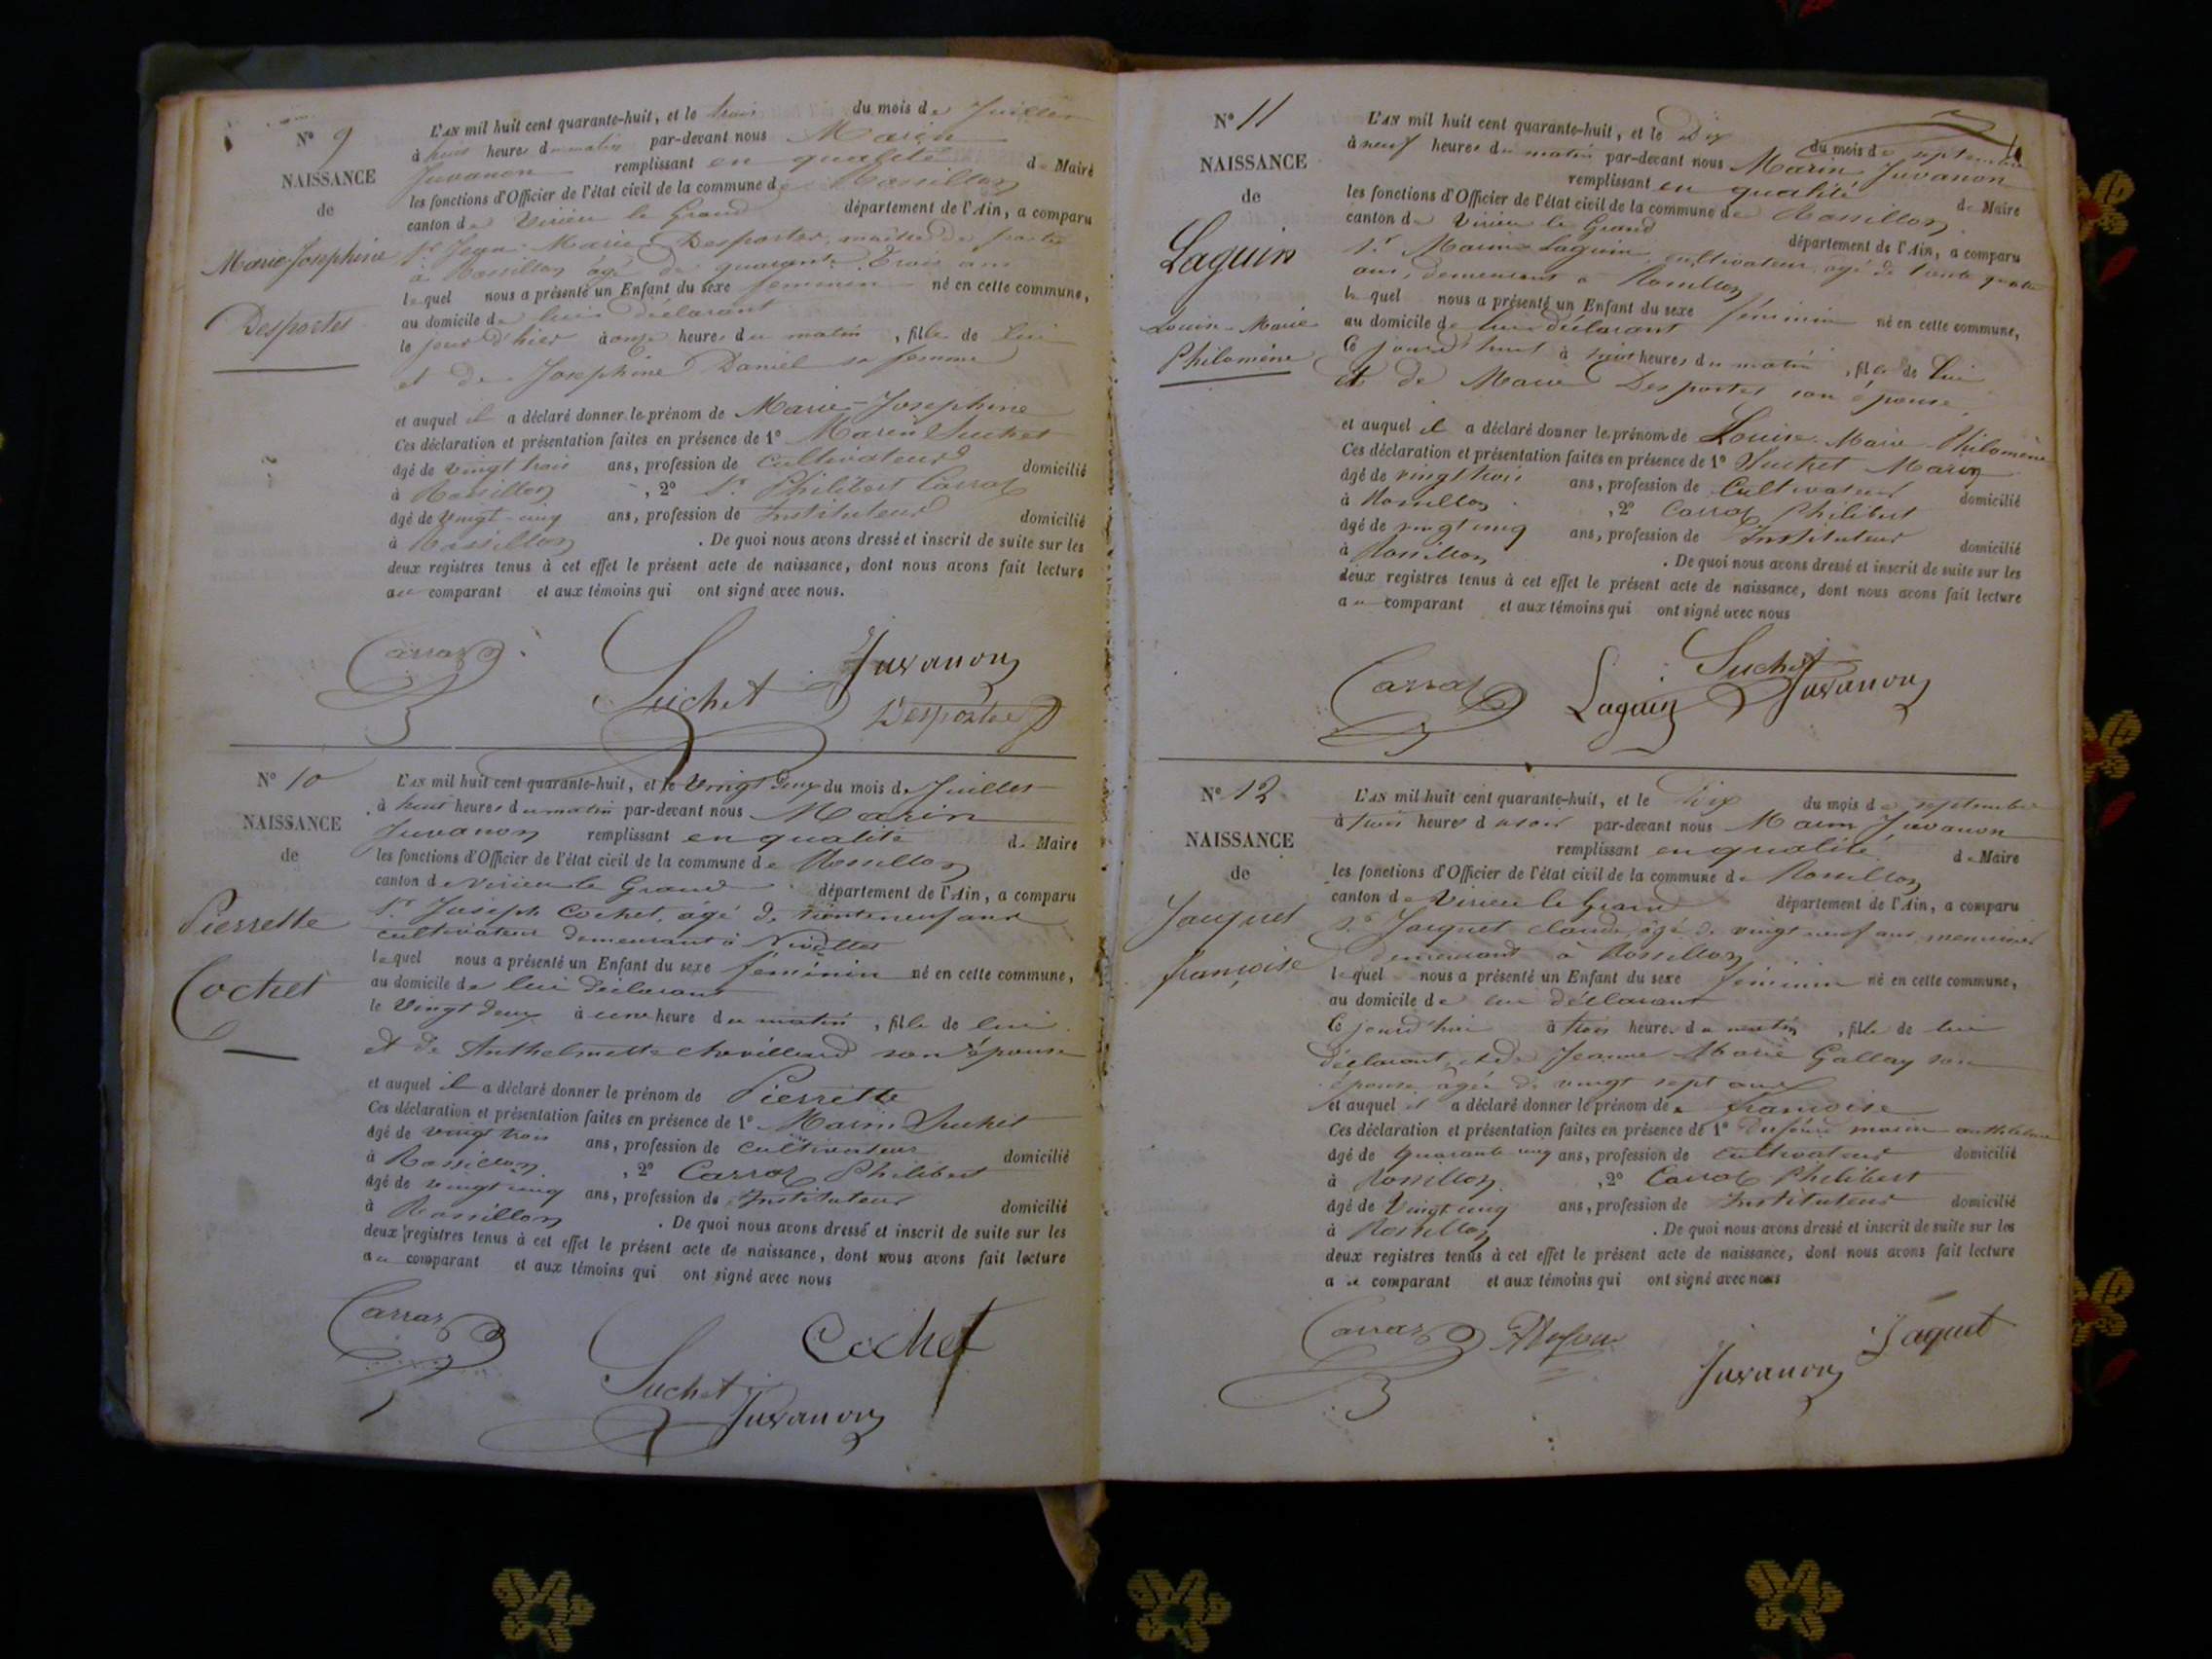 N° 9
NAISSANCE
de
Marie-Josephine
Desportes
L'AN mil huit cent quarante-huit, et le trois du mois de Juillet
à huit heures du matin par-devant nous Marin
Juvanon remplissant en qualité de Maire
les fonctions d'Officier de l'état civil de la commune de Rossillon
canton de Virieu le Grand département de l'Ain, a comparu
Sr Jean-Marie Desportes, maître de
à Rossillon âgé de quarante trois ans
lequel nous a présenté un Enfant du sexe féminin né en cette commune,
au domicile de lui déclarant
le jour d'hier à onze heures du matin, fille de lui
et de Josephine Daniel sa femme
et auquel il a déclaré donner le prénom de Marie-Josephine
Ces déclaration et présentation faites en présence de 1° Marin Suchet
âgé de vingt trois ans, profession de Cultivateur domicilié
à Rossillon, 2° Sr Philibert Carraz
âgé de vingt-cinq ans, profession de Instituteur domicilié
à Rossillon. De quoi nous avons dressé et inscrit de suite sur les
deux registres tenus à cet effet le présent acte de naissance, dont nous avons fait lecture
au comparant et aux témoins qui ont signé avec nous.
Carraz Suchet Juvanon
Desportes
N° 10
NAISSANCE
de
Pierrette
Cochet
L'AN mil huit cent quarante-huit, et le vingt deux du mois de Juillet
à huit heures du matin par-devant nous Marin
Juvanon remplissant en qualité de Maire
les fonctions d'Officier de l'état civil de la commune de Rossillon
canton de Virieu le Grand département de l'Ain, a comparu
Sr Joseph Cochet, âgé de trente neuf ans
cultivateur demeurant à
lequel nous a présenté un Enfant du sexe féminin né en cette commune,
au domicile de lui déclarant
le vingt deux à une heure du matin, fille de lui
et de Anthelmette Chevillard son épouse
et auquel il a déclaré donner le prénom de Pierrette
Ces déclaration et présentation faites en présence de 1° Marin Suchet
âgé de vingt trois ans, profession de cultivateur domicilié
à Rossillon, 2° Carraz Philibert
âgé de vingt cinq ans, profession de Instituteur domicilié
à Rossillon. De quoi nous avons dressé et inscrit de suite sur les
deux registres tenus à cet effet le présent acte de naissance, dont nous avons fait lecture
au comparant et aux témoins qui ont signé avec nous
Carraz Suchet Cochet
Juvanon
N° 11
NAISSANCE
de
Laguin
Louise-Marie
Philomène
L'AN mil huit cent quarante-huit, et le Dix du mois de septembre
à neuf heures du matin par-devant nous Marin Juvanon
remplissant en qualité de Maire
les fonctions d'Officier de l'état civil de la commune de Rossillon
canton de Virieu le Grand département de l'Ain, a comparu
Sr Laguin, cultivateur, âgé de trente quatre
ans, demeurant à Rossillon
lequel nous a présenté un Enfant du sexe féminin né en cette commune,
au domicile de lui déclarant
Ce jourd'hui à heures du matin, fille de lui
et de Marie Desportes son épouse,
et auquel il a déclaré donner le prénom de Louise-Marie-Philomène
Ces déclaration et présentation faites en présence de 1° Suchet Marin
âgé de vingt trois ans, profession de Cultivateur domicilié
à Rossillon, 2° Carraz Philibert
âgé de vingt cinq ans, profession de Instituteur domicilié
à Rossillon. De quoi nous avons dressé et inscrit de suite sur les
deux registres tenus à cet effet le présent acte de naissance, dont nous avons fait lecture
au comparant et aux témoins qui ont signé avec nous
Carraz Laguin Suchet Juvanon
N° 12
NAISSANCE
de
Jacquet
françoise
L'AN mil huit cent quarante-huit, et le Dix du mois de septembre
à trois heures du soir par-devant nous Marin Juvanon
remplissant en qualité de Maire
les fonctions d'Officier de l'état civil de la commune de Rossillon
canton de Virieu le Grand département de l'Ain, a comparu
Sr Jacquet claude, âgé de vingt neuf ans, menuisier
demeurant à Rossillon
lequel nous a présenté un Enfant du sexe féminin né en cette commune,
au domicile de lui déclarant
Ce jourd'hui à trois heures du matin, fille de lui
déclarant, et de Jeanne Marie Gallay son
épouse âgée de vingt sept ans
et auquel il a déclaré donner le prénom de françoise
Ces déclaration et présentation faites en présence de 1° Dufour marin anthelme
âgé de quarante cinq ans, profession de cultivateur domicilié
à Rossillon, 2° Carraz Philibert
âgé de vingt cinq ans, profession de Instituteur domicilié
à Rossillon. De quoi nous avons dressé et inscrit de suite sur les
deux registres tenus à cet effet le présent acte de naissance, dont nous avons fait lecture
au comparant et aux témoins qui ont signé avec nous
Carraz Dufour Juvanon Jaquet